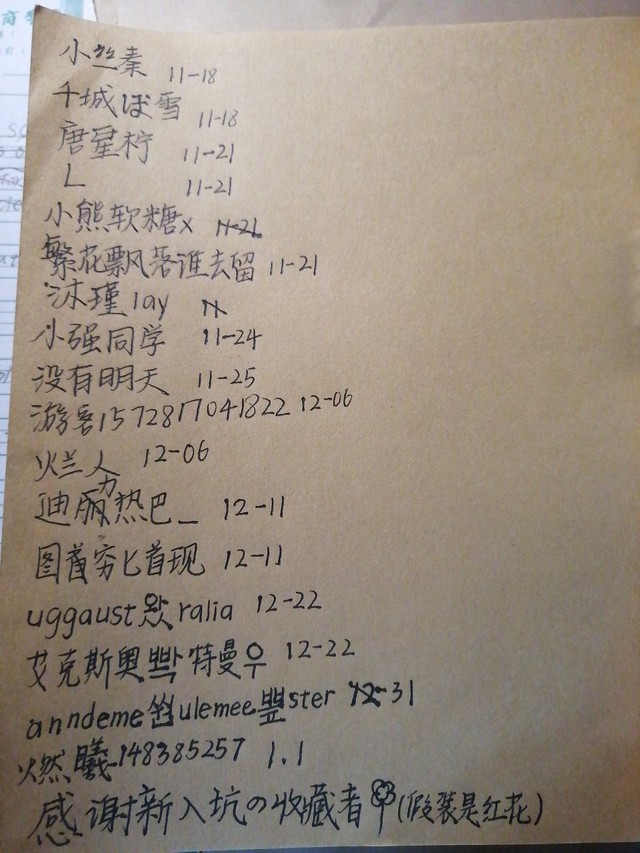 商
小丝秦 11-18
千城ぼ雪 11-18
唐星柠 11-21
L 11-21
小熊软糖x 11-21
繁花飘落谁去留 11-21
沐瑾lay
小强同学 11-24
没有明天 11-25
游客1572817041822 12-06
烂人 12-06
迪丽热巴_ 12-11
图首穷匕首现 12-11
uggaust왔ralia 12-22
艾克斯奥빡特曼우 12-22
anndeme쒐ulemee쁿ster 12-31
燃曦-148385257 1.1
感谢新入坑の收藏者(假装是红花)